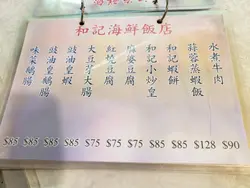 和記海鮮飯店
水煮牛肉 $90
蒜蓉蒸蝦飯 $128
和記蝦餅 $85
和記小炒皇 $85
麻婆豆腐 $75
紅燒豆腐 $75
大豆芽大腸 $75
豉油皇蝦 $85
豉油皇鵝腸 $85
味菜鵝腸 $85